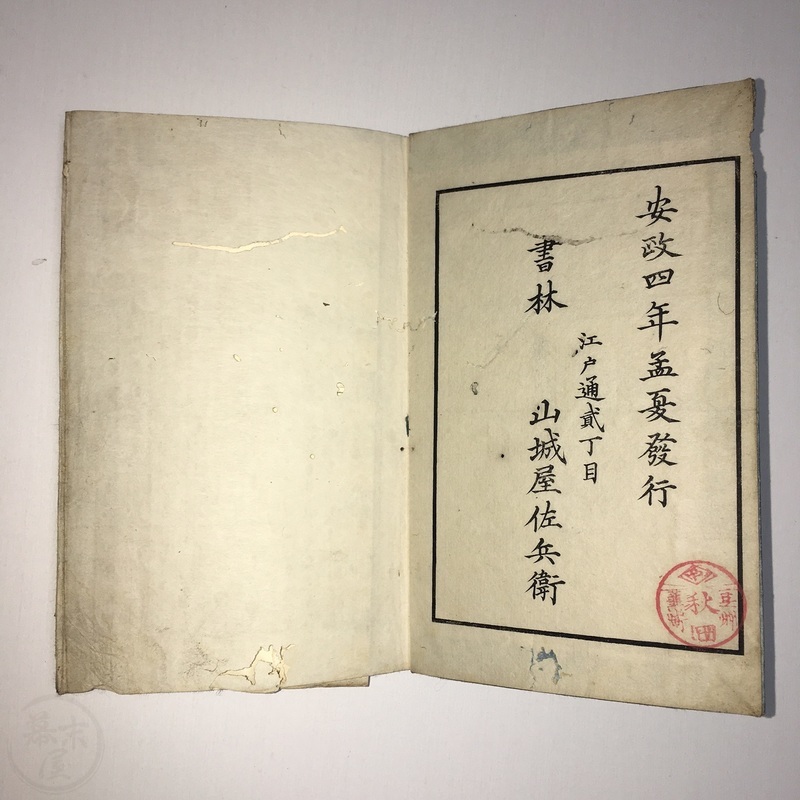 安政四年孟夏發行
江戸通貳丁目
書林 山城屋佐兵衛
秋田
幕末屋